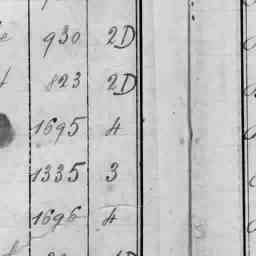 930 2D
823 2D
1695 4
1335 3
1696 4